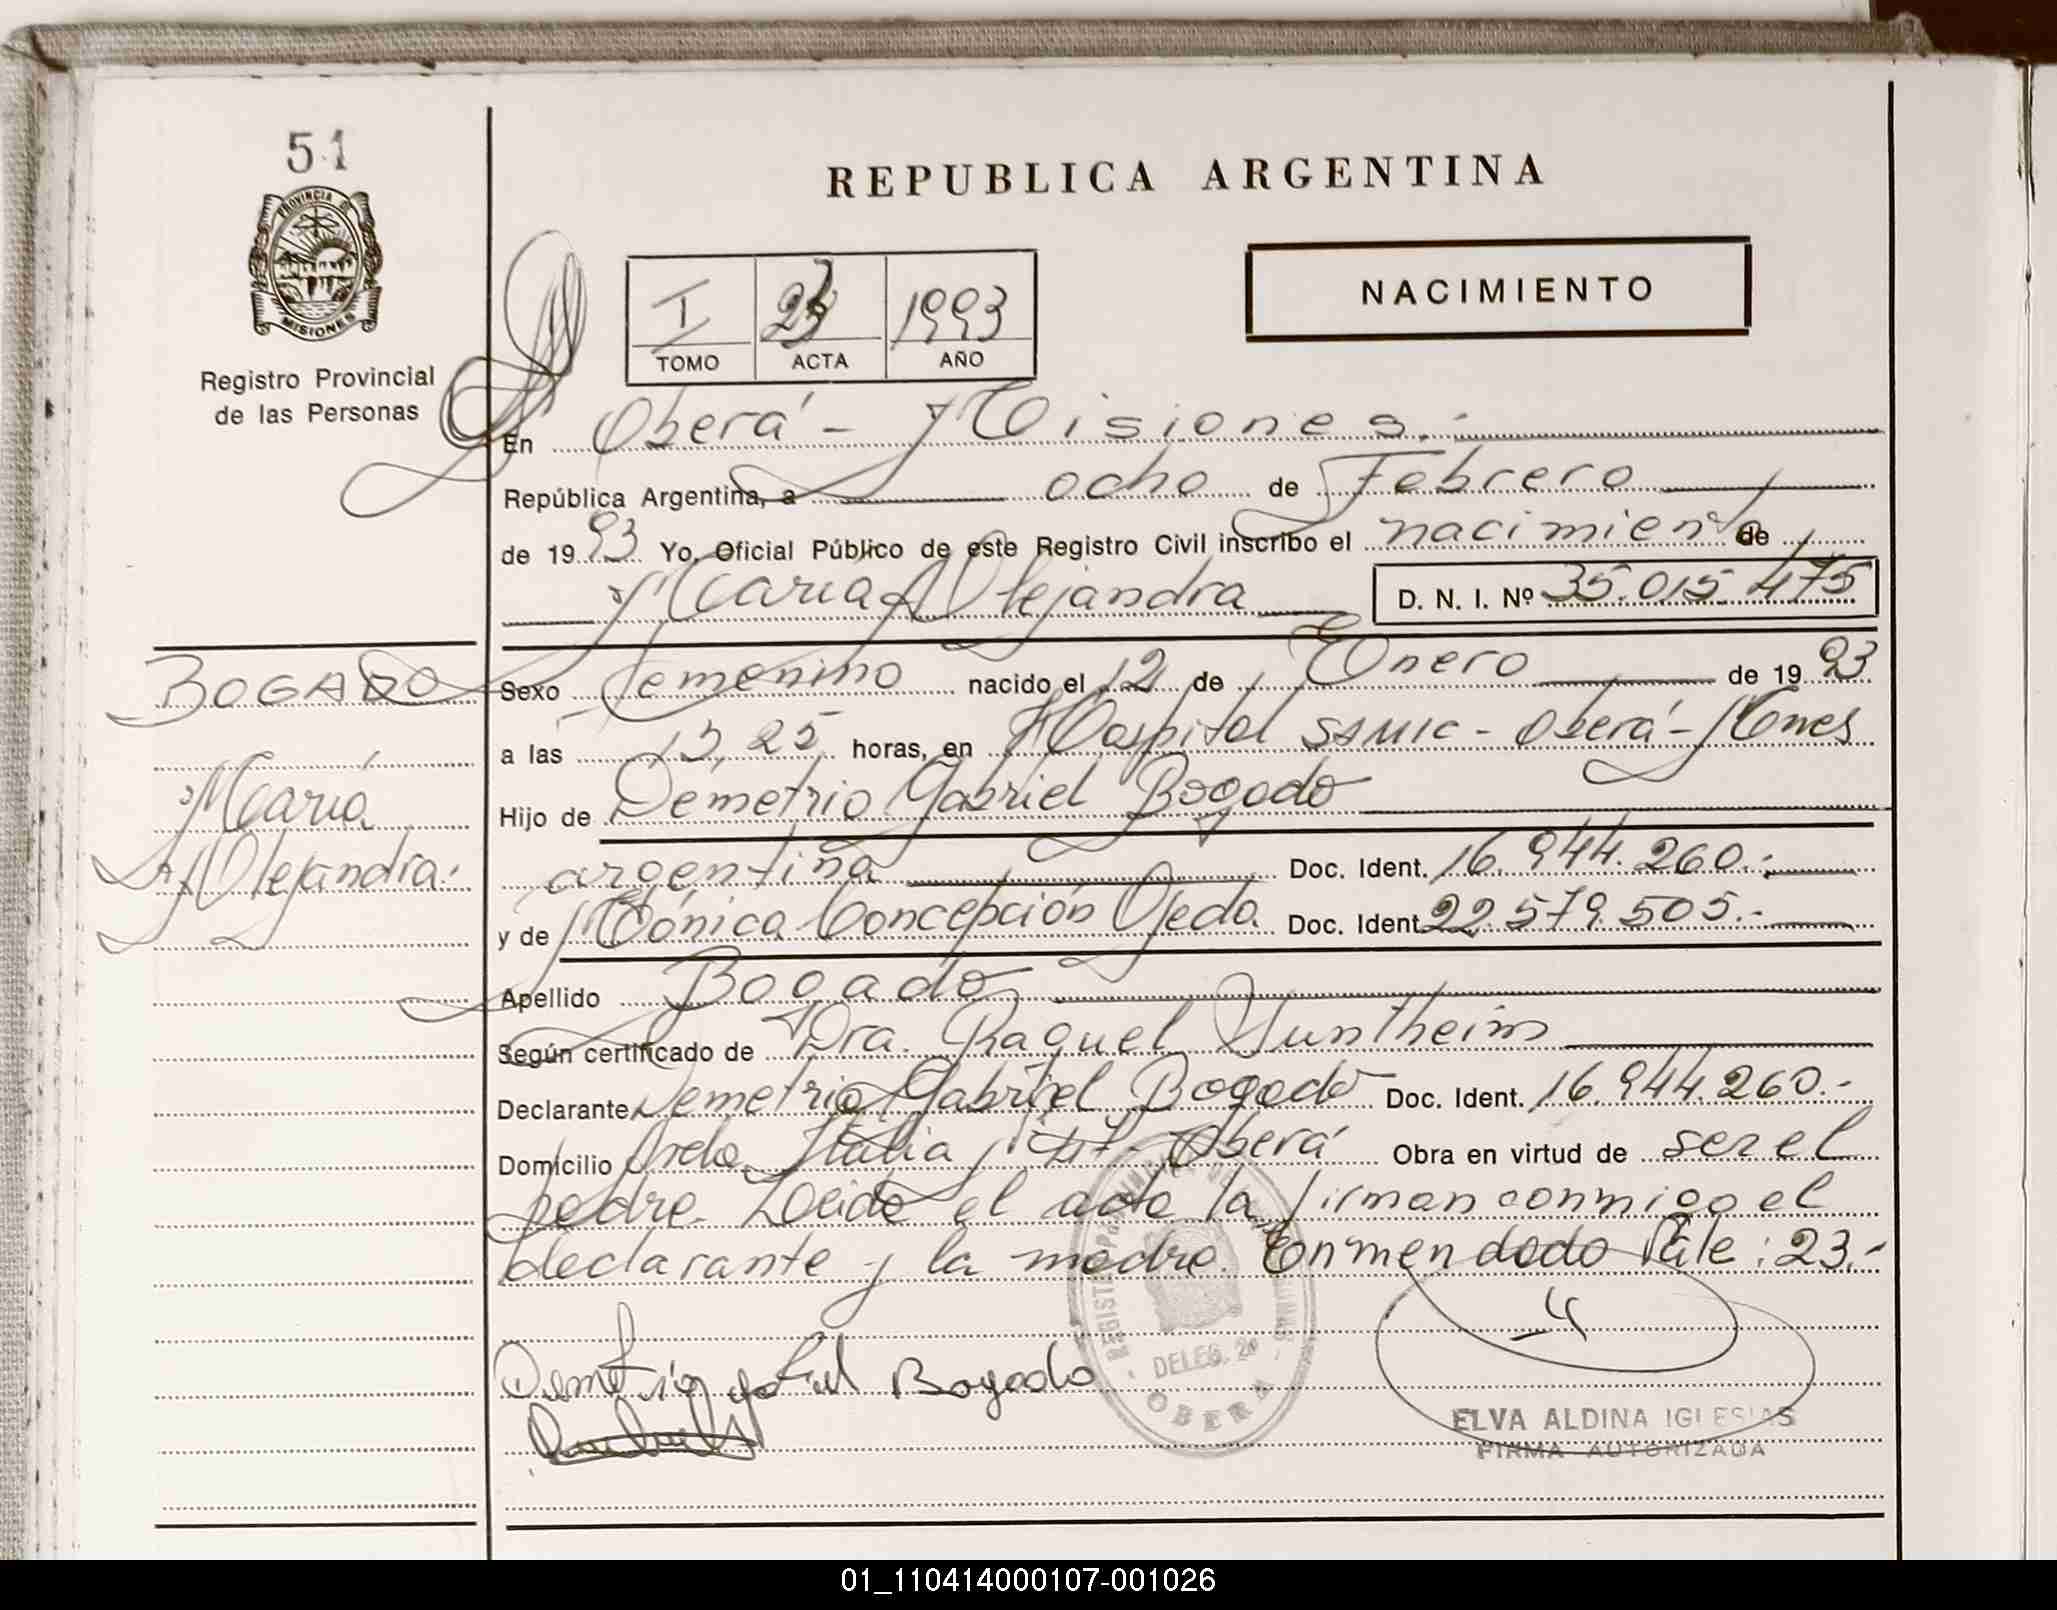 51
PROVINCIA D
MISIONES
Registro Provincial
de las Personas
REPUBLICA ARGENTINA
I 23 1993
TOMO ACTA AÑO
NACIMIENTO
En Oberá - Misiones.-
República Argentina, a ocho de Febrero
de 1993 Yo, Oficial Público de este Registro Civil inscribo el nacimiento de
María Alejandra D. N. I. Nº 35.015.475
BOGADO
María
Alejandra.
Sexo femenino nacido el 12 de Enero de 1993
a las 13,25 horas, en Hospital SAMIC - Oberá - Mnes
Hijo de Demetrio Gabriel Bogado
argentina Doc. Ident. 16.944.260.-
y de Mónica Concepción Ojeda Doc. Ident. 22.579.505.-
Apellido Bogado
Según certificado de Dra. Raquel
Declarante Demetrio Gabriel Bogado Doc. Ident. 16.944.260.-
Domicilio Italia Oberá Obra en virtud de ser el
padre. Leida el acta la firman conmigo el
declarante y la madre. Enmendado Vale: 23.-
Demetrio Gabriel Bogado
DELEG. 20
OBERA
ELVA ALDINA IGLESIAS
FIRMA AUTORIZADA
01_110414000107-001026